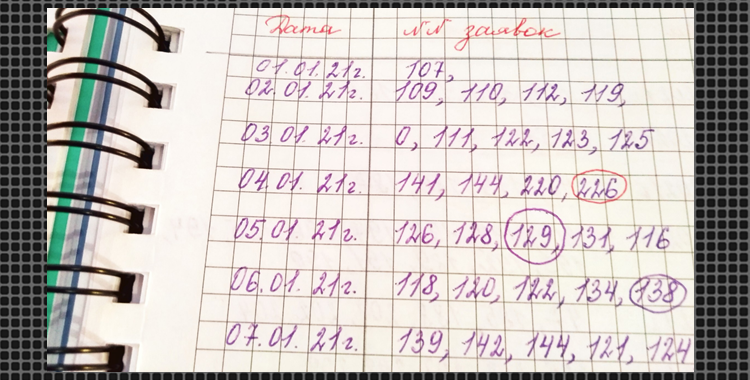 Дата NN заявок
01.01.21г. 107,
02.01.21г. 109, 110, 112, 119,
03.01.21г. 0, 111, 122, 123, 125
04.01.21г. 141, 144, 220, 226
05.01.21г. 126, 128, 129, 131, 116
06.01.21г. 118, 120, 122, 134, 138
07.01.21г. 139, 142, 144, 121, 124